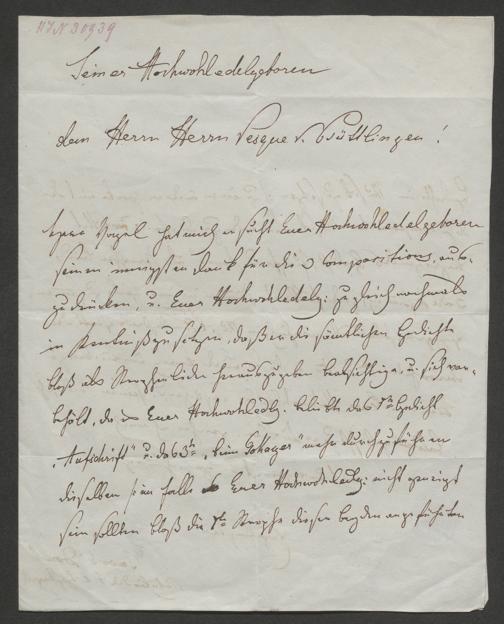 HIN 30939
Seiner Hochwohledelgeboren
dem Herrn Herrn Vesque v. Püttlingen!
Herr Vogel hat mich ersucht Euer Hochwohledelgeboren
seinen innigsten Dank für die 3 Compositions, aus-
zudrücken, u. Euer Hochwohledelg: zugleich nochmals
in Kenntniß zu setzen, daß er die sämtlichen Gedichte
bloß als Strophenlieder herauszugeben beabsichtige, u. sich vor-
behält, da Euer Hochwohledlg. beliebt das 1te Gedicht
„Aufschrift" u. das 3te „beim" mehr durchzuführen
dieselben im Falle Euer Hochwohledlg: nicht geneigt
sein sollten bloß die 1te Strophe dieser beyden angeführten